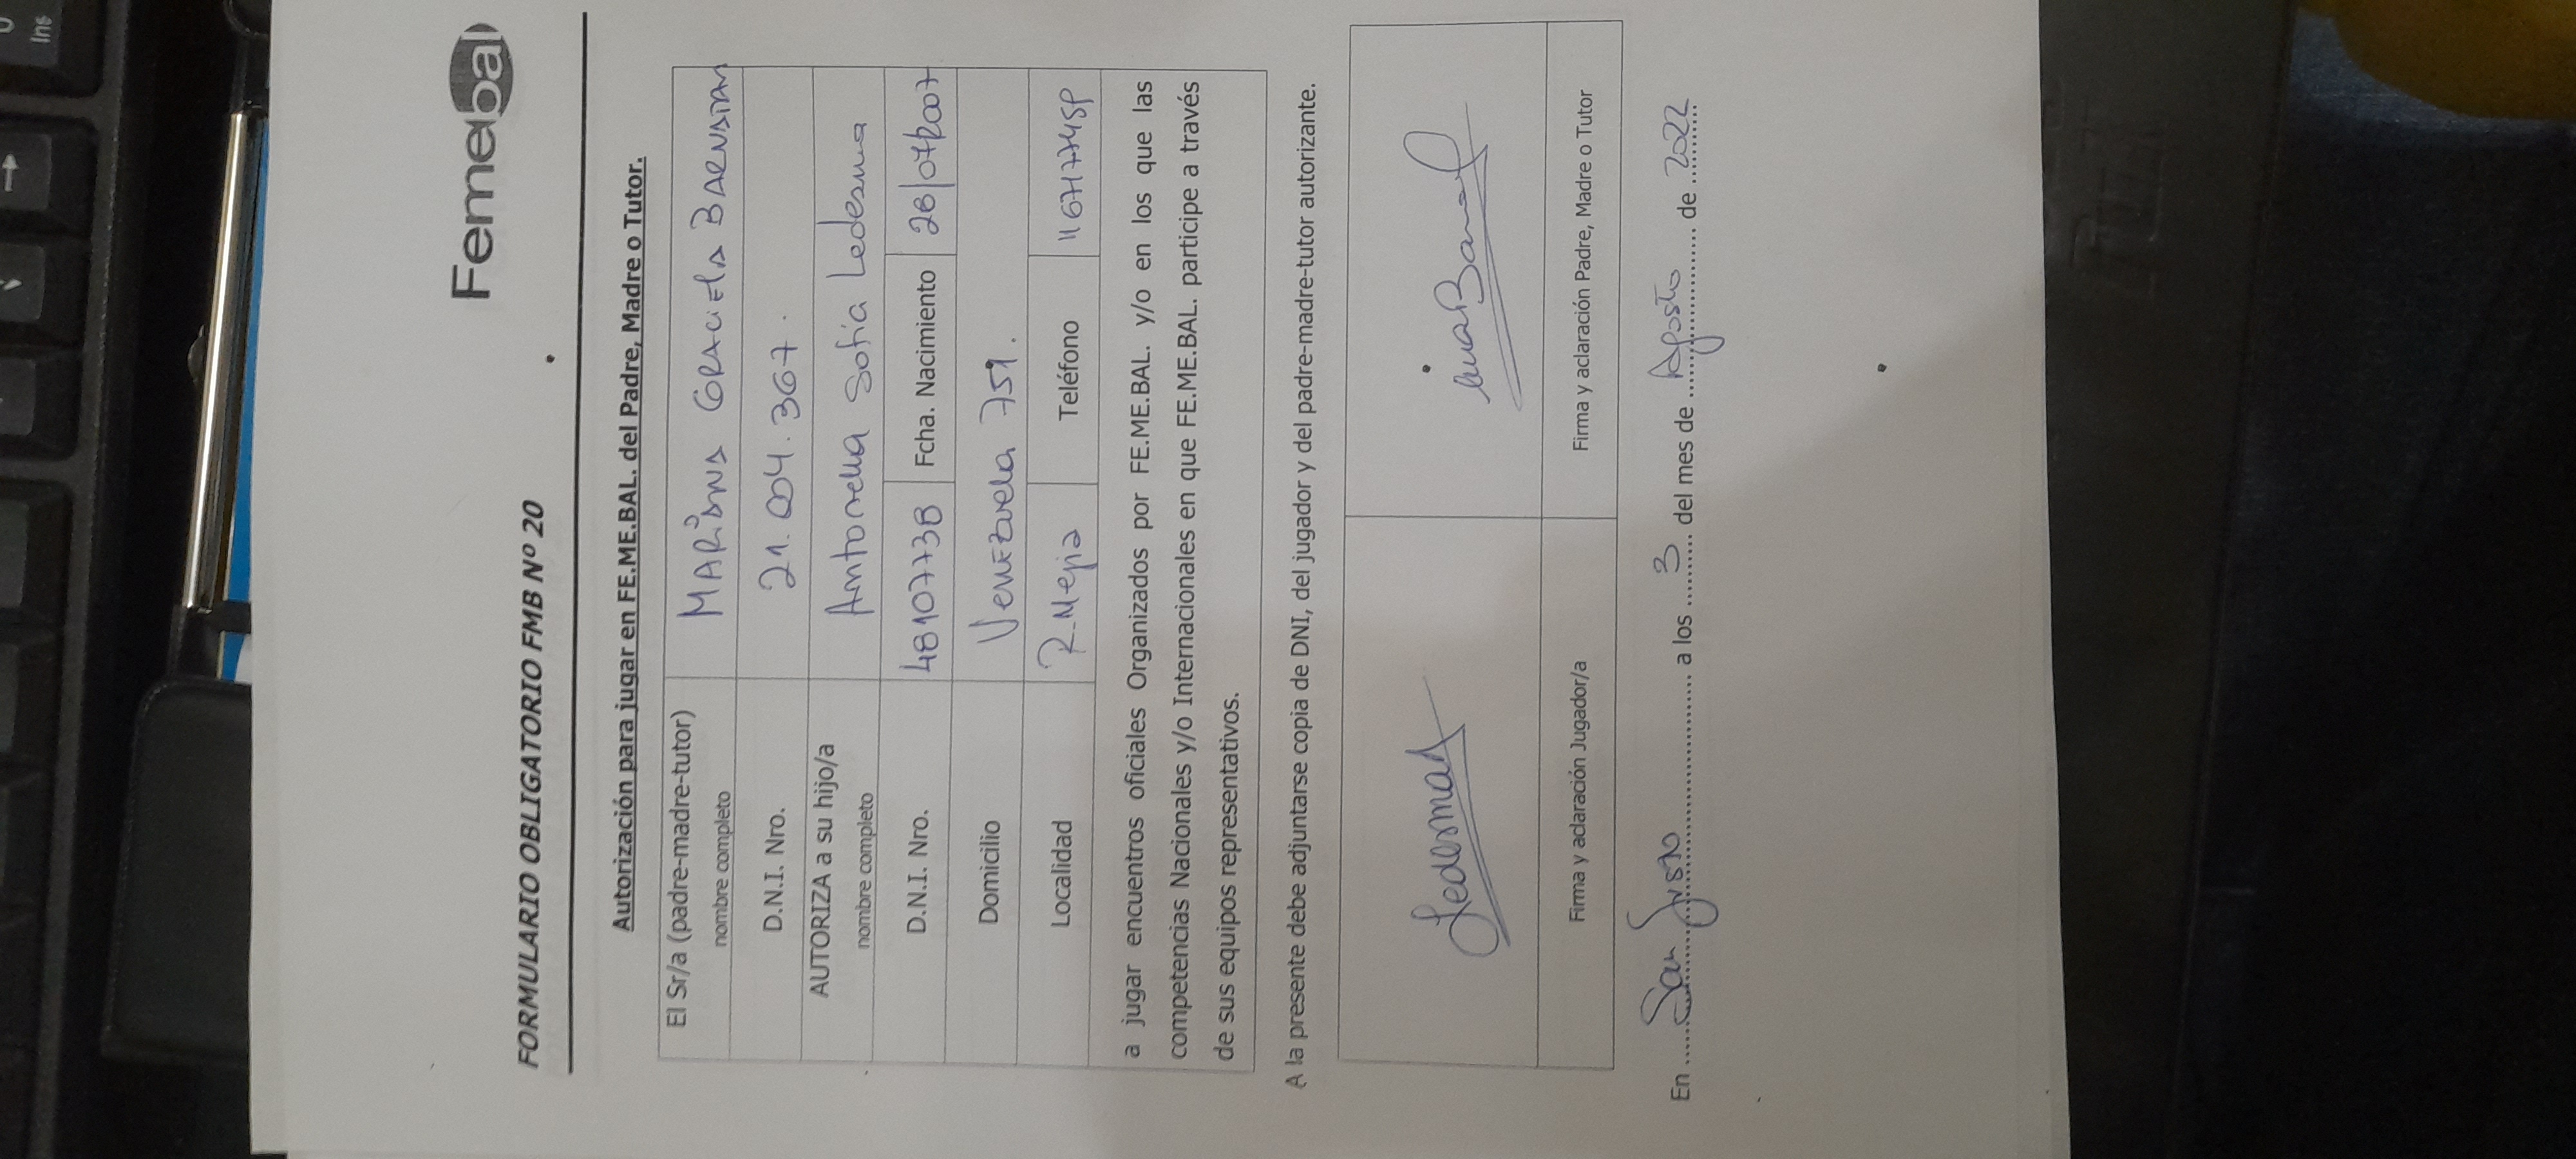 Femebal
FORMULARIO OBLIGATORIO FMB Nº 20
Autorización para jugar en FE.ME.BAL. del Padre, Madre o Tutor.
El Sr/a (padre-madre-tutor) nombre completo MARIANA GRACIELA
D.N.I. Nro. 21.004.367.
AUTORIZA a su hijo/a nombre completo Antonella Sofía Ledesma
D.N.I. Nro. 48107738 Fcha. Nacimiento 28/07/2007
Domicilio Venezuela 751.
Localidad R. Mejia Teléfono
a jugar encuentros oficiales Organizados por FE.ME.BAL. y/o en los que las
competencias Nacionales y/o Internacionales en que FE.ME.BAL. participe a través
de sus equipos representativos.
A la presente debe adjuntarse copia de DNI, del jugador y del padre-madre-tutor autorizante.
Firma y aclaración Jugador/a Firma y aclaración Padre, Madre o Tutor
En San Justo a los 3 del mes de Agosto de 2022
Ins